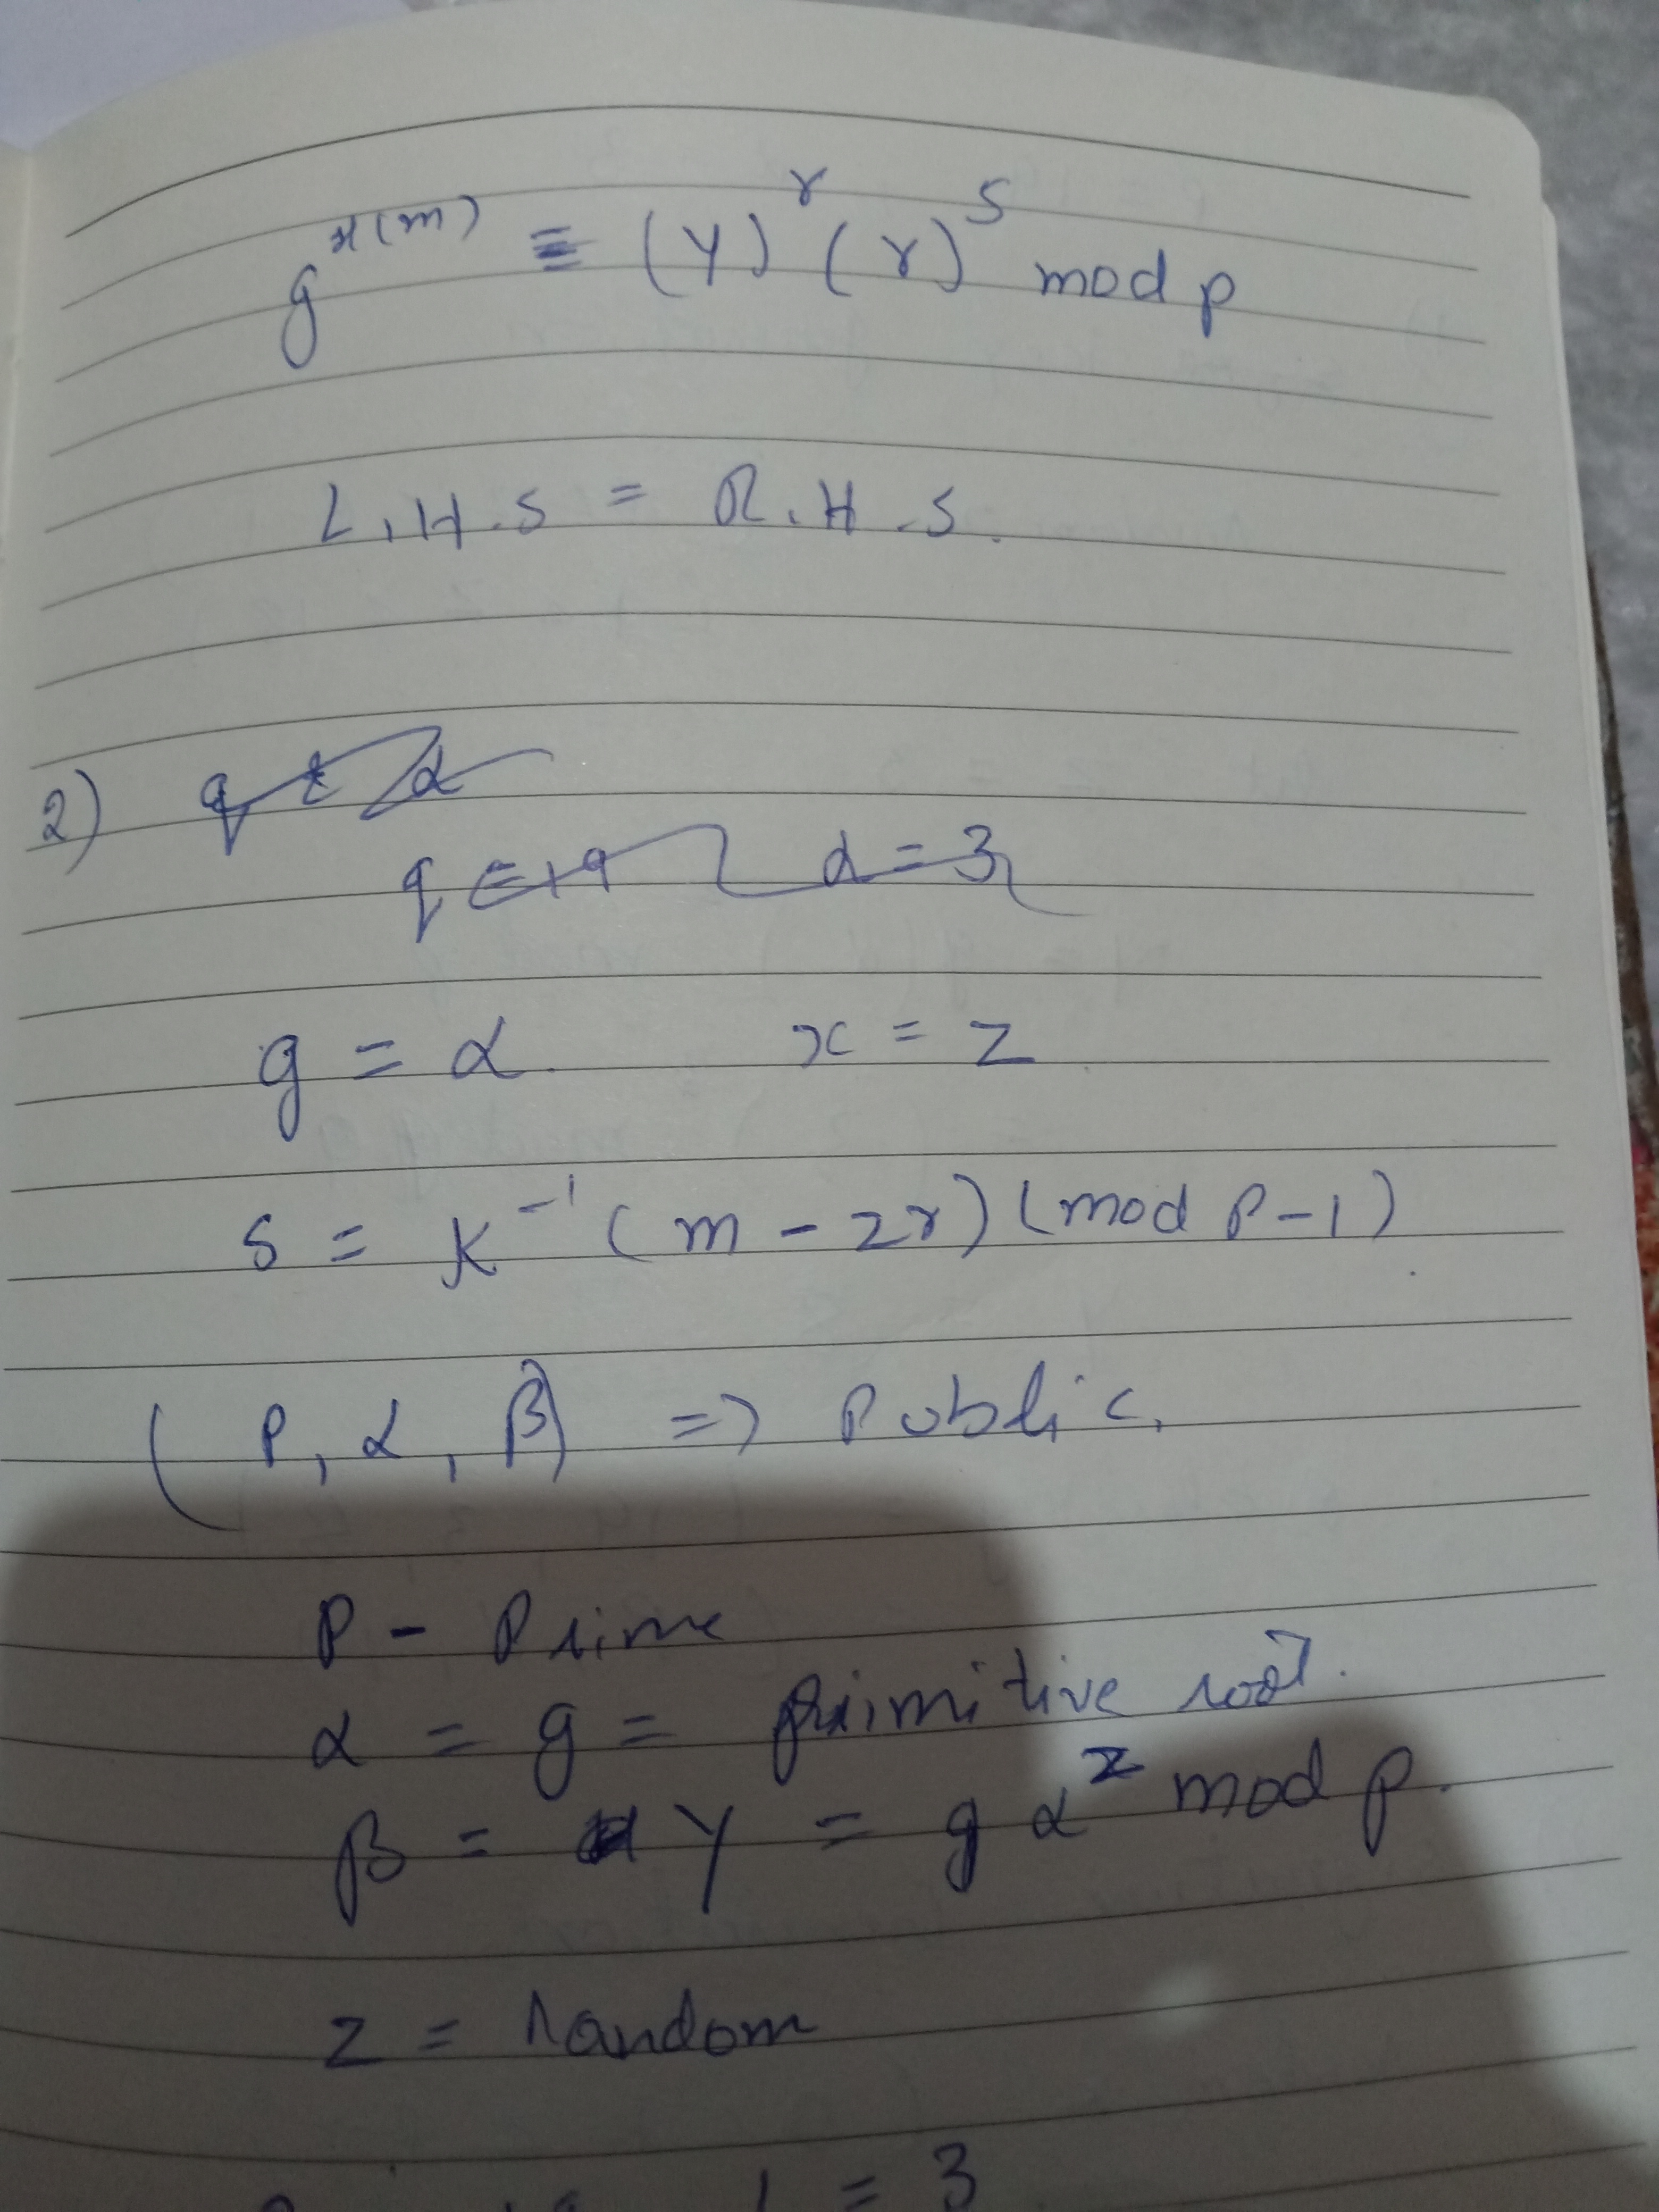 g^H(m) ≡ (y)^r (r)^s mod p
L.H.S = R.H.S.
2)
g = α x = z
s = K^-1 (m - zr) (mod p-1)
(P, α, β) => Public.
P - Prime
α = g = primitive root.
β = y = g α^z mod p.
z = random
= 3